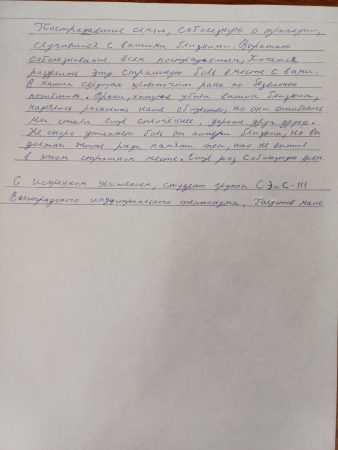 Пострадавшие семьи, соболезную о трагедии,
случившейся с вашими близкими. Выражаю
соболезнование всем пострадавшим, хочется
разделить эту страшную боль вместе с вами.
В наших сердцах кровоточит рана по безвинно
погибшим. Враги, которые убили ваших близких,
надеялись расколоть наше общество, но они ошиблись
мы стали ещё сплочённее, дороже друг другу.
Не скоро утихнет боль от потери близких, но вы
должны жить ради памяти тех, кто не выжил
в этом страшном месте. Ещё раз соболезную всем.
С искренним уважением, студент группы СЭиС-111
Волгоградского индустриального техникума,